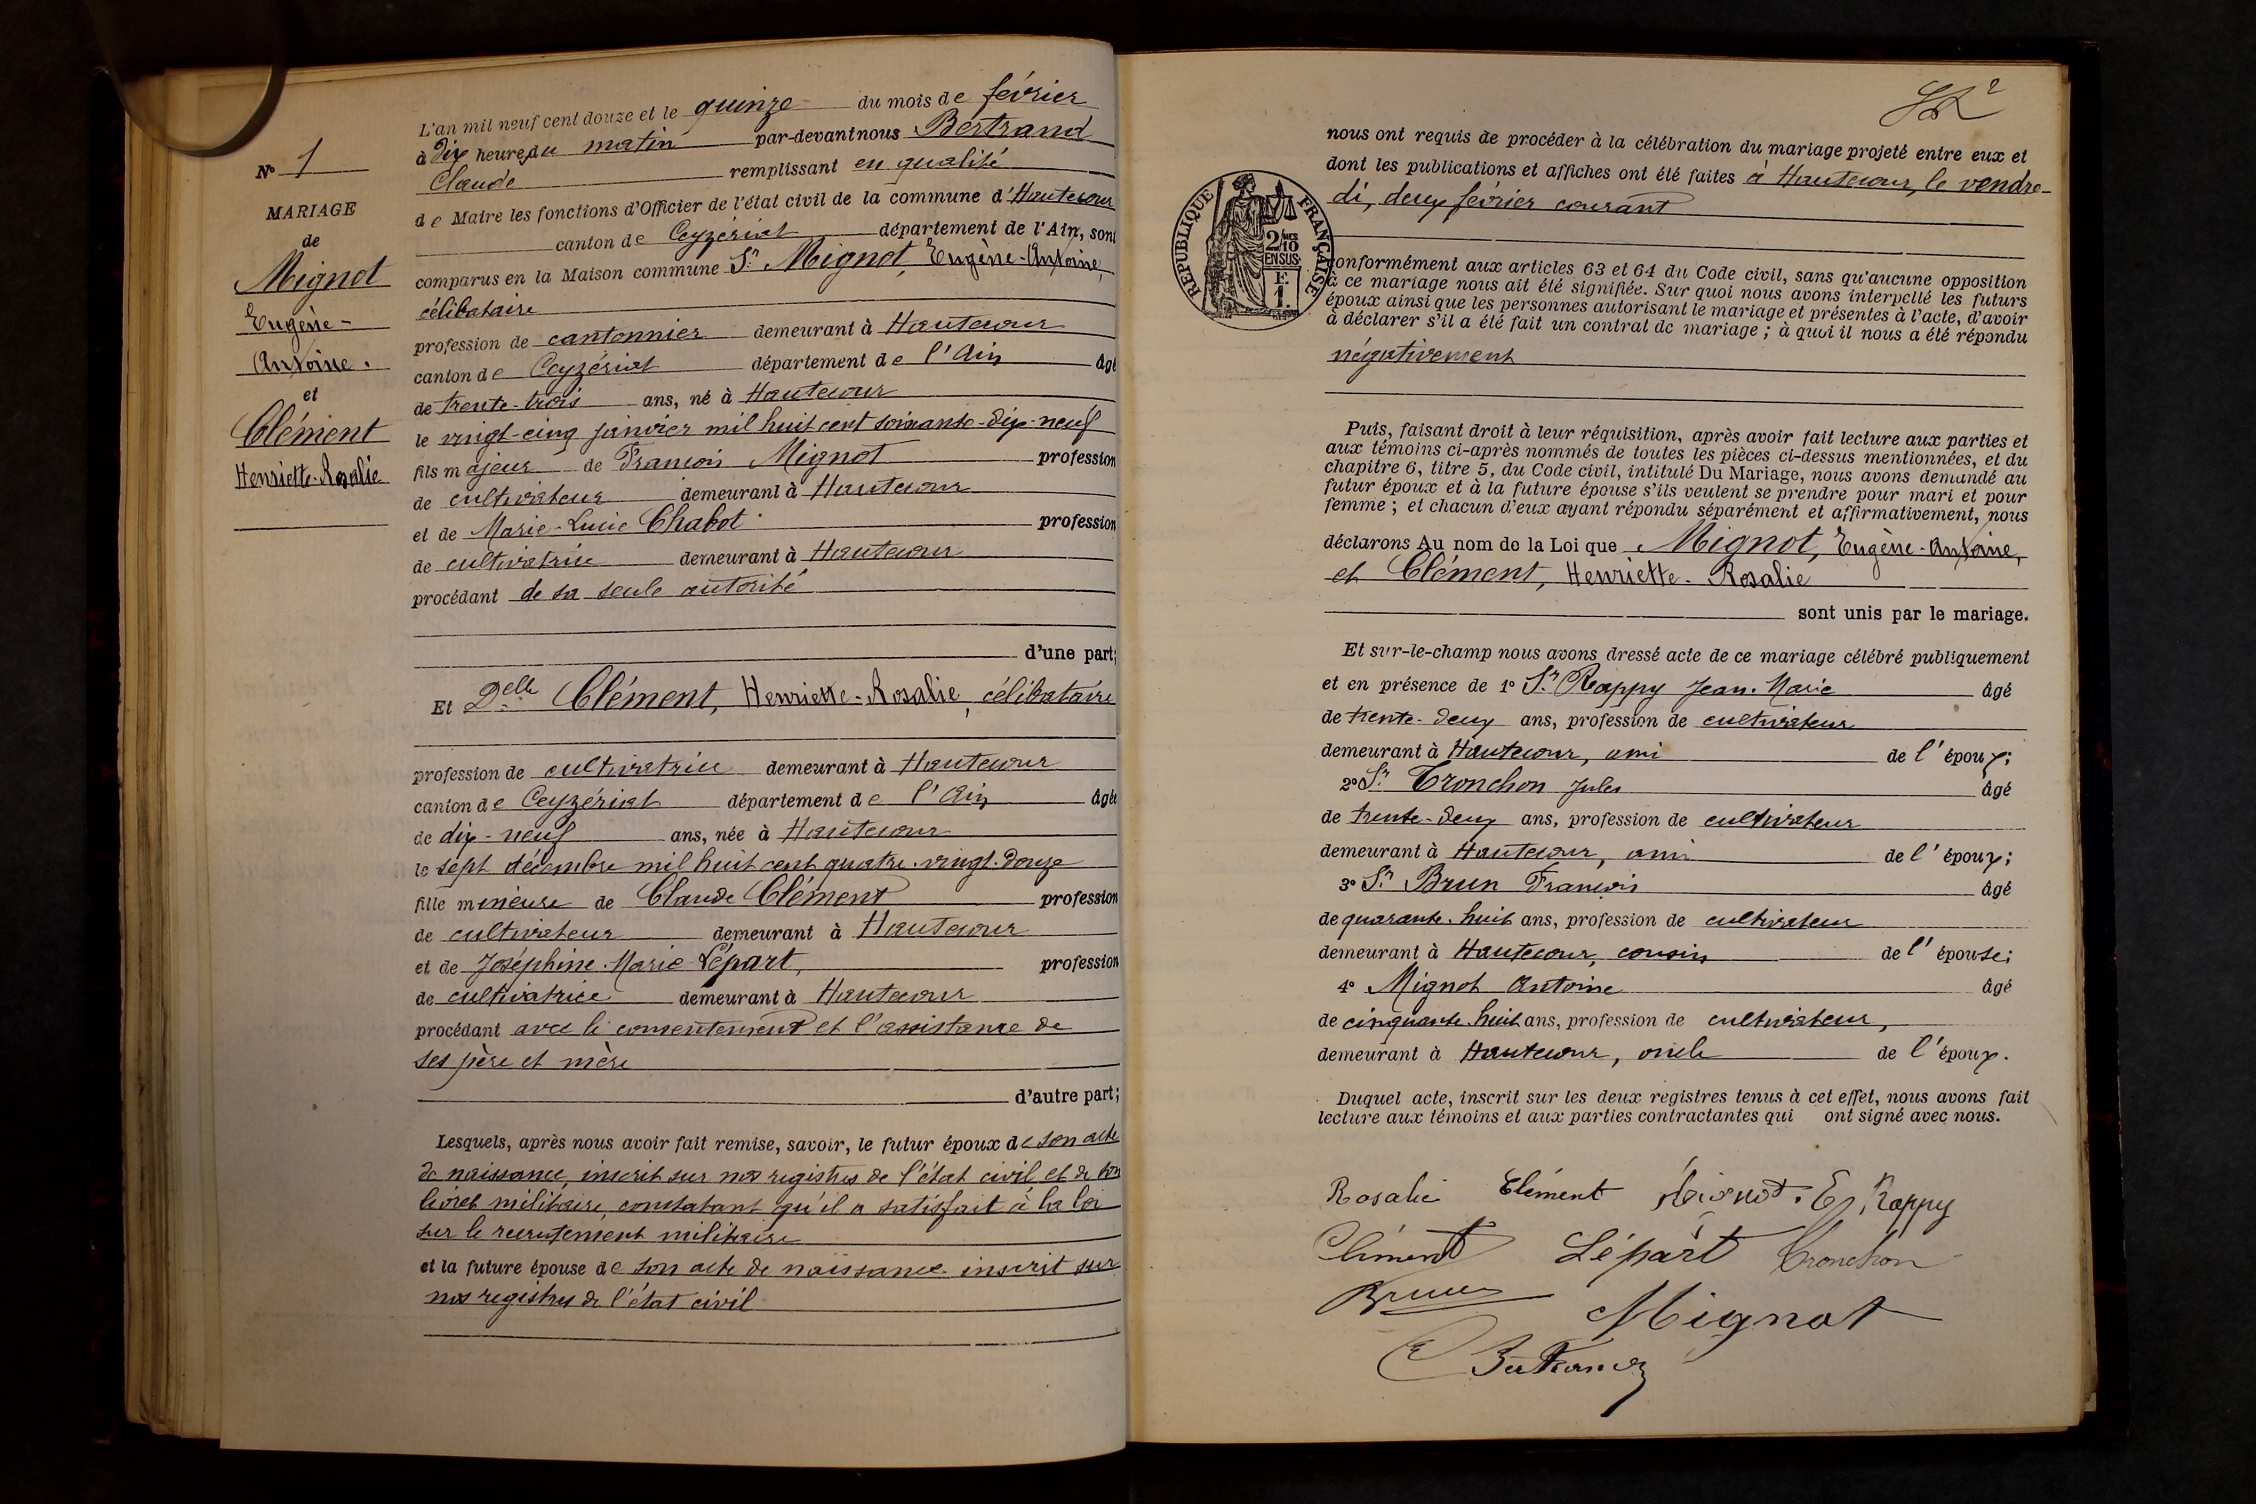 N° 1
MARIAGE
de
Mignot
Eugène-
Antoine.
et
Clément
Henriette-Rosalie
L'an mil neuf cent douze et le quinze du mois de février
à dix heures du matin par-devant nous Bertrand
Claude remplissant en qualité
de Maire les fonctions d'Officier de l'état civil de la commune d'Hautecour
canton de Ceyzériat département de l'Ain, sont
comparus en la Maison commune Sr Mignot, Eugène-Antoine,
célibataire
profession de cantonnier demeurant à Hautecour
canton de Ceyzériat département de l'Ain âgé
de trente-trois ans, né à Hautecour
le vingt-cinq janvier mil huit cent soixante-dix-neuf
fils majeur de François Mignot profession
de cultivateur demeurant à Hautecour
et de Marie-Lucie Chabot profession
de cultivatrice demeurant à Hautecour
procédant de sa seule autorité
d'une part;
Et Delle Clément, Henriette-Rosalie, célibataire
profession de cultivatrice demeurant à Hautecour
canton de Ceyzériat département de l'Ain âgée
de dix-neuf ans, née à Hautecour
le sept décembre mil huit cent quatre-vingt-douze
fille mineure de Claude Clément profession
de cultivateur demeurant à Hautecour
et de Joséphine-Marie Lépart, profession
de cultivatrice demeurant à Hautecour
procédant avec le consentement et l'assistance de
ses père et mère
d'autre part;
Lesquels, après nous avoir fait remise, savoir, le futur époux de son acte
de naissance, inscrit sur nos registres de l'état civil et de son
livret militaire, constatant qu'il a satisfait à la loi
sur le recrutement militaire
et la future épouse de son acte de naissance inscrit sur
nos registres de l'état civil
RÉPUBLIQUE FRANÇAISE
2/10
EN SUS
F.
1.
nous ont requis de procéder à la célébration du mariage projeté entre eux et
dont les publications et affiches ont été faites à Hautecour, le vendre-
di, deux février courant
conformément aux articles 63 et 64 du Code civil, sans qu'aucune opposition
à ce mariage nous ait été signifiée. Sur quoi nous avons interpellé les futurs
époux ainsi que les personnes autorisant le mariage et présentes à l'acte, d'avoir
à déclarer s'il a été fait un contrat de mariage ; à quoi il nous a été répondu
négativement
Puis, faisant droit à leur réquisition, après avoir fait lecture aux parties et
aux témoins ci-après nommés de toutes les pièces ci-dessus mentionnées, et du
chapitre 6, titre 5, du Code civil, intitulé Du Mariage, nous avons demandé au
futur époux et à la future épouse s'ils veulent se prendre pour mari et pour
femme ; et chacun d'eux ayant répondu séparément et affirmativement, nous
déclarons Au nom de la Loi que Mignot, Eugène-Antoine,
et Clément, Henriette-Rosalie
sont unis par le mariage.
Et sur-le-champ nous avons dressé acte de ce mariage célébré publiquement
et en présence de 1° Sr Rappy Jean-Marie âgé
de trente-deux ans, profession de cultivateur
demeurant à Hautecour, ami de l'époux;
2° Sr Tronchon Jules âgé
de trente-deux ans, profession de cultivateur
demeurant à Hautecour, ami de l'époux;
3° Sr Brun François âgé
de quarante-huit ans, profession de cultivateur
demeurant à Hautecour, cousin de l'épouse;
4° Mignot Antoine âgé
de cinquante-huit ans, profession de cultivateur,
demeurant à Hautecour, oncle de l'époux.
Duquel acte, inscrit sur les deux registres tenus à cet effet, nous avons fait
lecture aux témoins et aux parties contractantes qui ont signé avec nous.
Rosalie Clément Mignot. E Rappy
Clément Lépart Tronchon
Brun
Mignot
Bertrand